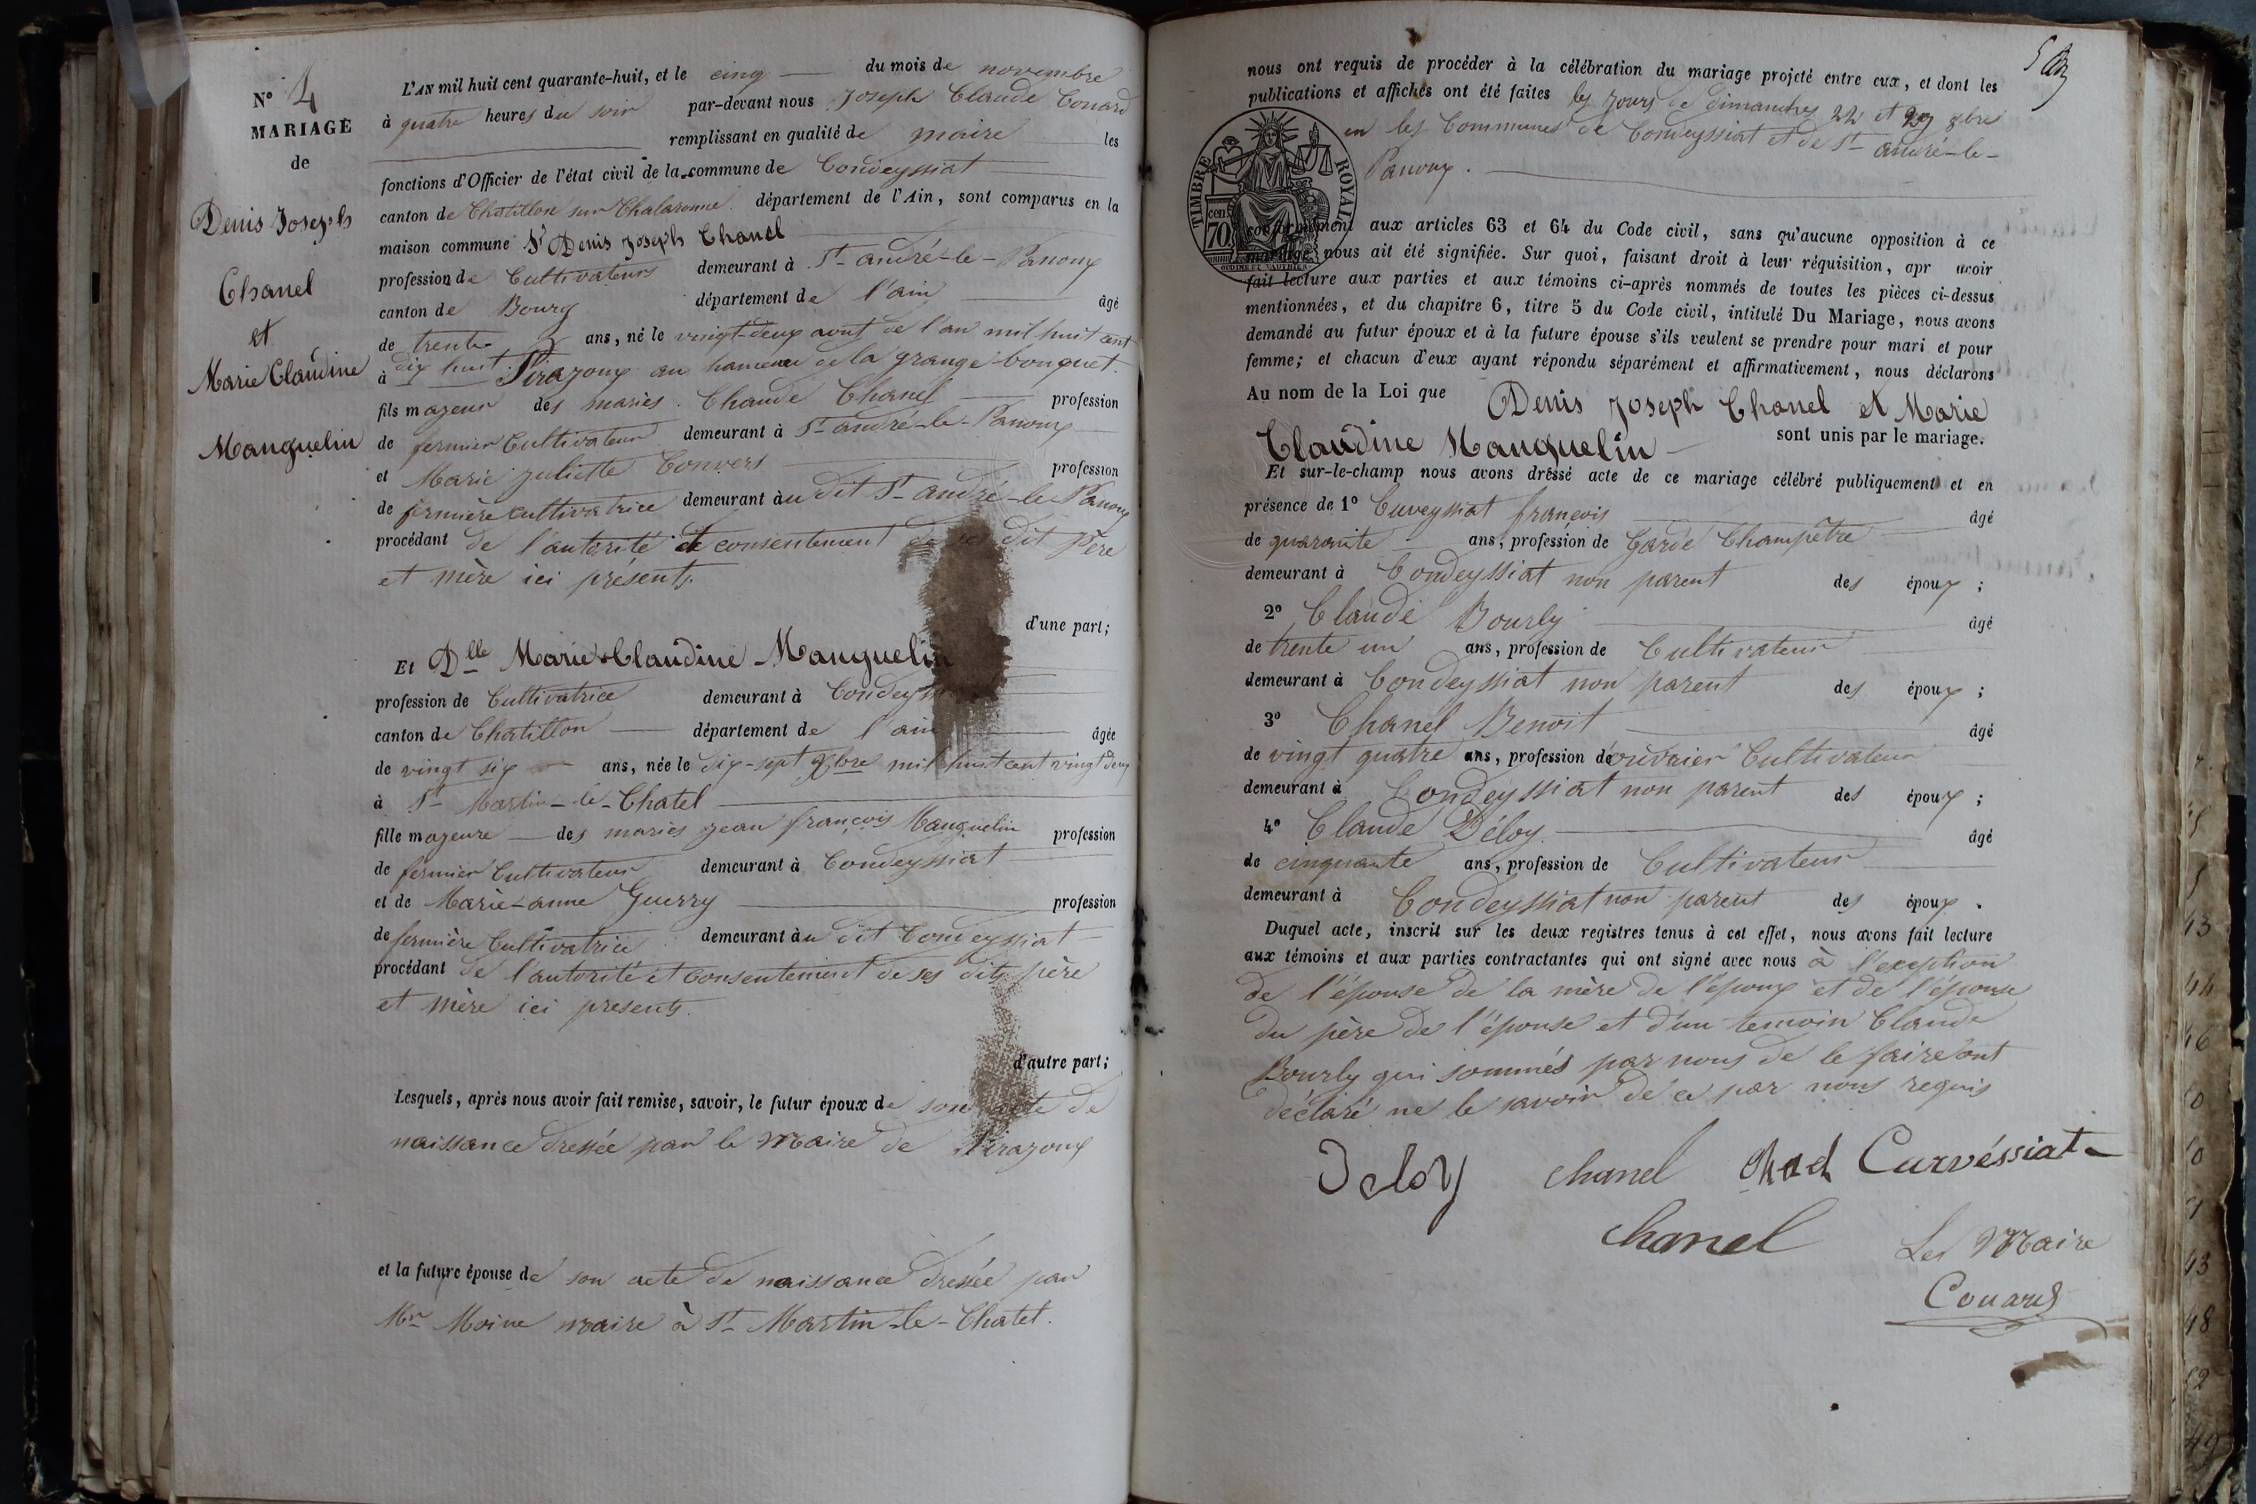 N° 4
MARIAGE
de
Denis Joseph
Chanel
et
Marie Claudine
Manguelin
L'AN mil huit cent quarante-huit, et le cinq du mois de novembre
à quatre heures du soir par-devant nous Joseph Claude Couard
remplissant en qualité de maire les
fonctions d'Officier de l'état civil de la commune de Condeyssiat
canton de Chatillon sur Chalaronne département de l'Ain, sont comparus en la
maison commune Sr Denis Joseph Chanel
profession de Cultivateur demeurant à St andré-le-Panoux
canton de Bourg département de l'ain âgé
de trente ans, né le vingt-deux aout de l'an mil huit cent
à dix huit Pirajoux au hameau de la grange-bouquet.
fils majeur des mariés Claude Chanel profession
de fermier Cultivateur demeurant à St andré-le-Panoux
et Marie juliette Convers profession
de fermière cultivatrice demeurant àu dit St andré-le Panoux
procédant de l'autorité et consentement de ses dit Père
et mère ici présents.
d'une part;
Et Dlle Marie Claudine Manguelin
profession de Cultivatrice demeurant à Condeyssiat
canton de Chatillon département de l'ain âgée
de vingt six ans, née le dix-sept Xbre mil huit cent vingt deux
à St Martin-le-Chatel
fille majeure des mariés jean françois Manguelin profession
de fermier Cultivateur demeurant à Condeyssiat
et de Marie-anne Guerry profession
de fermière Cultivatrice demeurant àu dit Condeyssiat
procédant de l'autorité et consentement de ses dits père
et mère ici presents.
d'autre part;
Lesquels, après nous avoir fait remise, savoir, le futur époux de son acte de
naissance dressée par le Maire de Pirajoux
et la future épouse de son acte de naissance dressée par
Mr Moine maire à St Martin-le-Chatel.
nous ont requis de procéder à la célébration du mariage projeté entre eux, et dont les
publications et affichés ont été faites les jours de dimanches 22 et 29 8bre
en les Communes de Condeyssiat et de St andré-le-
Panoux.
TIMBRE ROYAL
70 cen.
conformément aux articles 63 et 64 du Code civil, sans qu'aucune opposition à ce
mariage nous ait été signifiée. Sur quoi, faisant droit à leur réquisition, apr avoir
fait lecture aux parties et aux témoins ci-après nommés de toutes les pièces ci-dessus
mentionnées, et du chapitre 6, titre 5 du Code civil, intitulé Du Mariage, nous avons
demandé au futur époux et à la future épouse s'ils veulent se prendre pour mari et pour
femme; et chacun d'eux ayant répondu séparément et affirmativement, nous déclarons
Au nom de la Loi que Denis Joseph Chanel et Marie
Claudine Manguelin sont unis par le mariage.
Et sur-le-champ nous avons dréssé acte de ce mariage célébré publiquement et en
présence de 1° Cuveyssiat françois âgé
de quarante ans, profession de Garde Champêtre
demeurant à Condeyssiat non parent des époux ;
2° Claude Bourly âgé
de trente un ans, profession de Cultivateur
demeurant à Condeyssiat non parent des époux ;
3° Chanel Benoit âgé
de vingt quatre ans, profession de ouvrier Cultivateur
demeurant à Condeyssiat non parent des époux ;
4° Claude Déloy âgé
de cinquante ans, profession de Cultivateur
demeurant à Condeyssiat non parent des époux .
Duquel acte, inscrit sur les deux registres tenus à cet effet, nous avons fait lecture
aux témoins et aux parties contractantes qui ont signé avec nous à l'exeption
de l'épouse de la mère de l'époux et de l'épouse
du père de l'épouse et d'un temoin Claude
Bourly qui sommés par nous de le faire ont
déclaré ne le savoir de ce par nous requis
Deloy chanel Curvéssiat
chanel Le Maire
Couard